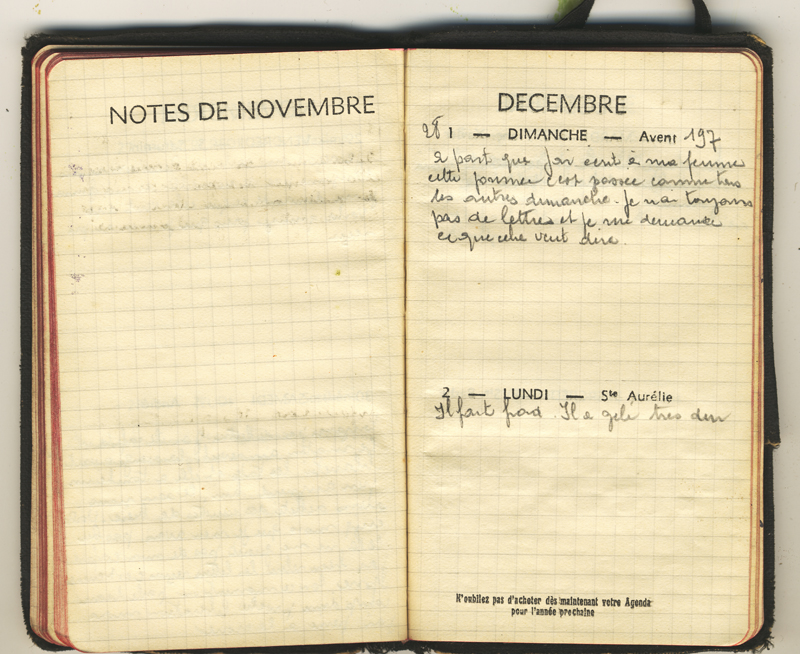 NOTES DE NOVEMBRE
DECEMBRE
1 — DIMANCHE — Avent 197
à part que j'ai écrit à ma femme
cette journée c'est passée comme tous
les autres dimanche. Je n'ai toujours
pas de lettres et je me demande
ce que cela veut dire.
2 — LUNDI — Ste Aurélie
Il fait froid. Il a gelé très dur
N'oubliez pas d'acheter dès maintenant votre Agenda
pour l'année prochaine